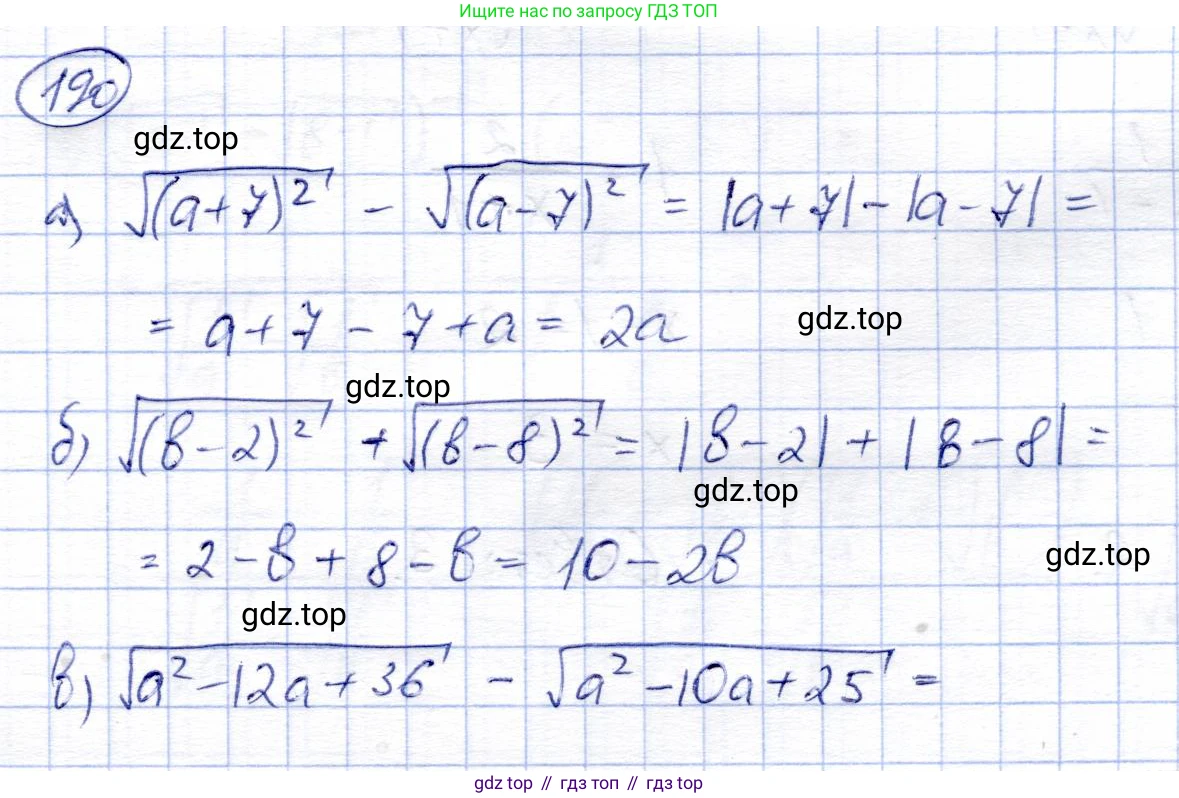 Ищите нас по запросу ГДЗ ТОП
190
gdz.top
а) √(a+7)² - √(a-7)² = |a+7| - |a-7| =
= a+7-7+a = 2a
gdz.top
gdz.top
б) √(b-2)² + √(b-8)² = |b-2| + |b-8| =
gdz.top
= 2-b+8-b = 10-2b
gdz.top
gdz.top
в) √a²-12a+36 - √a²-10a+25 =
gdz top // гдз топ // gdz top